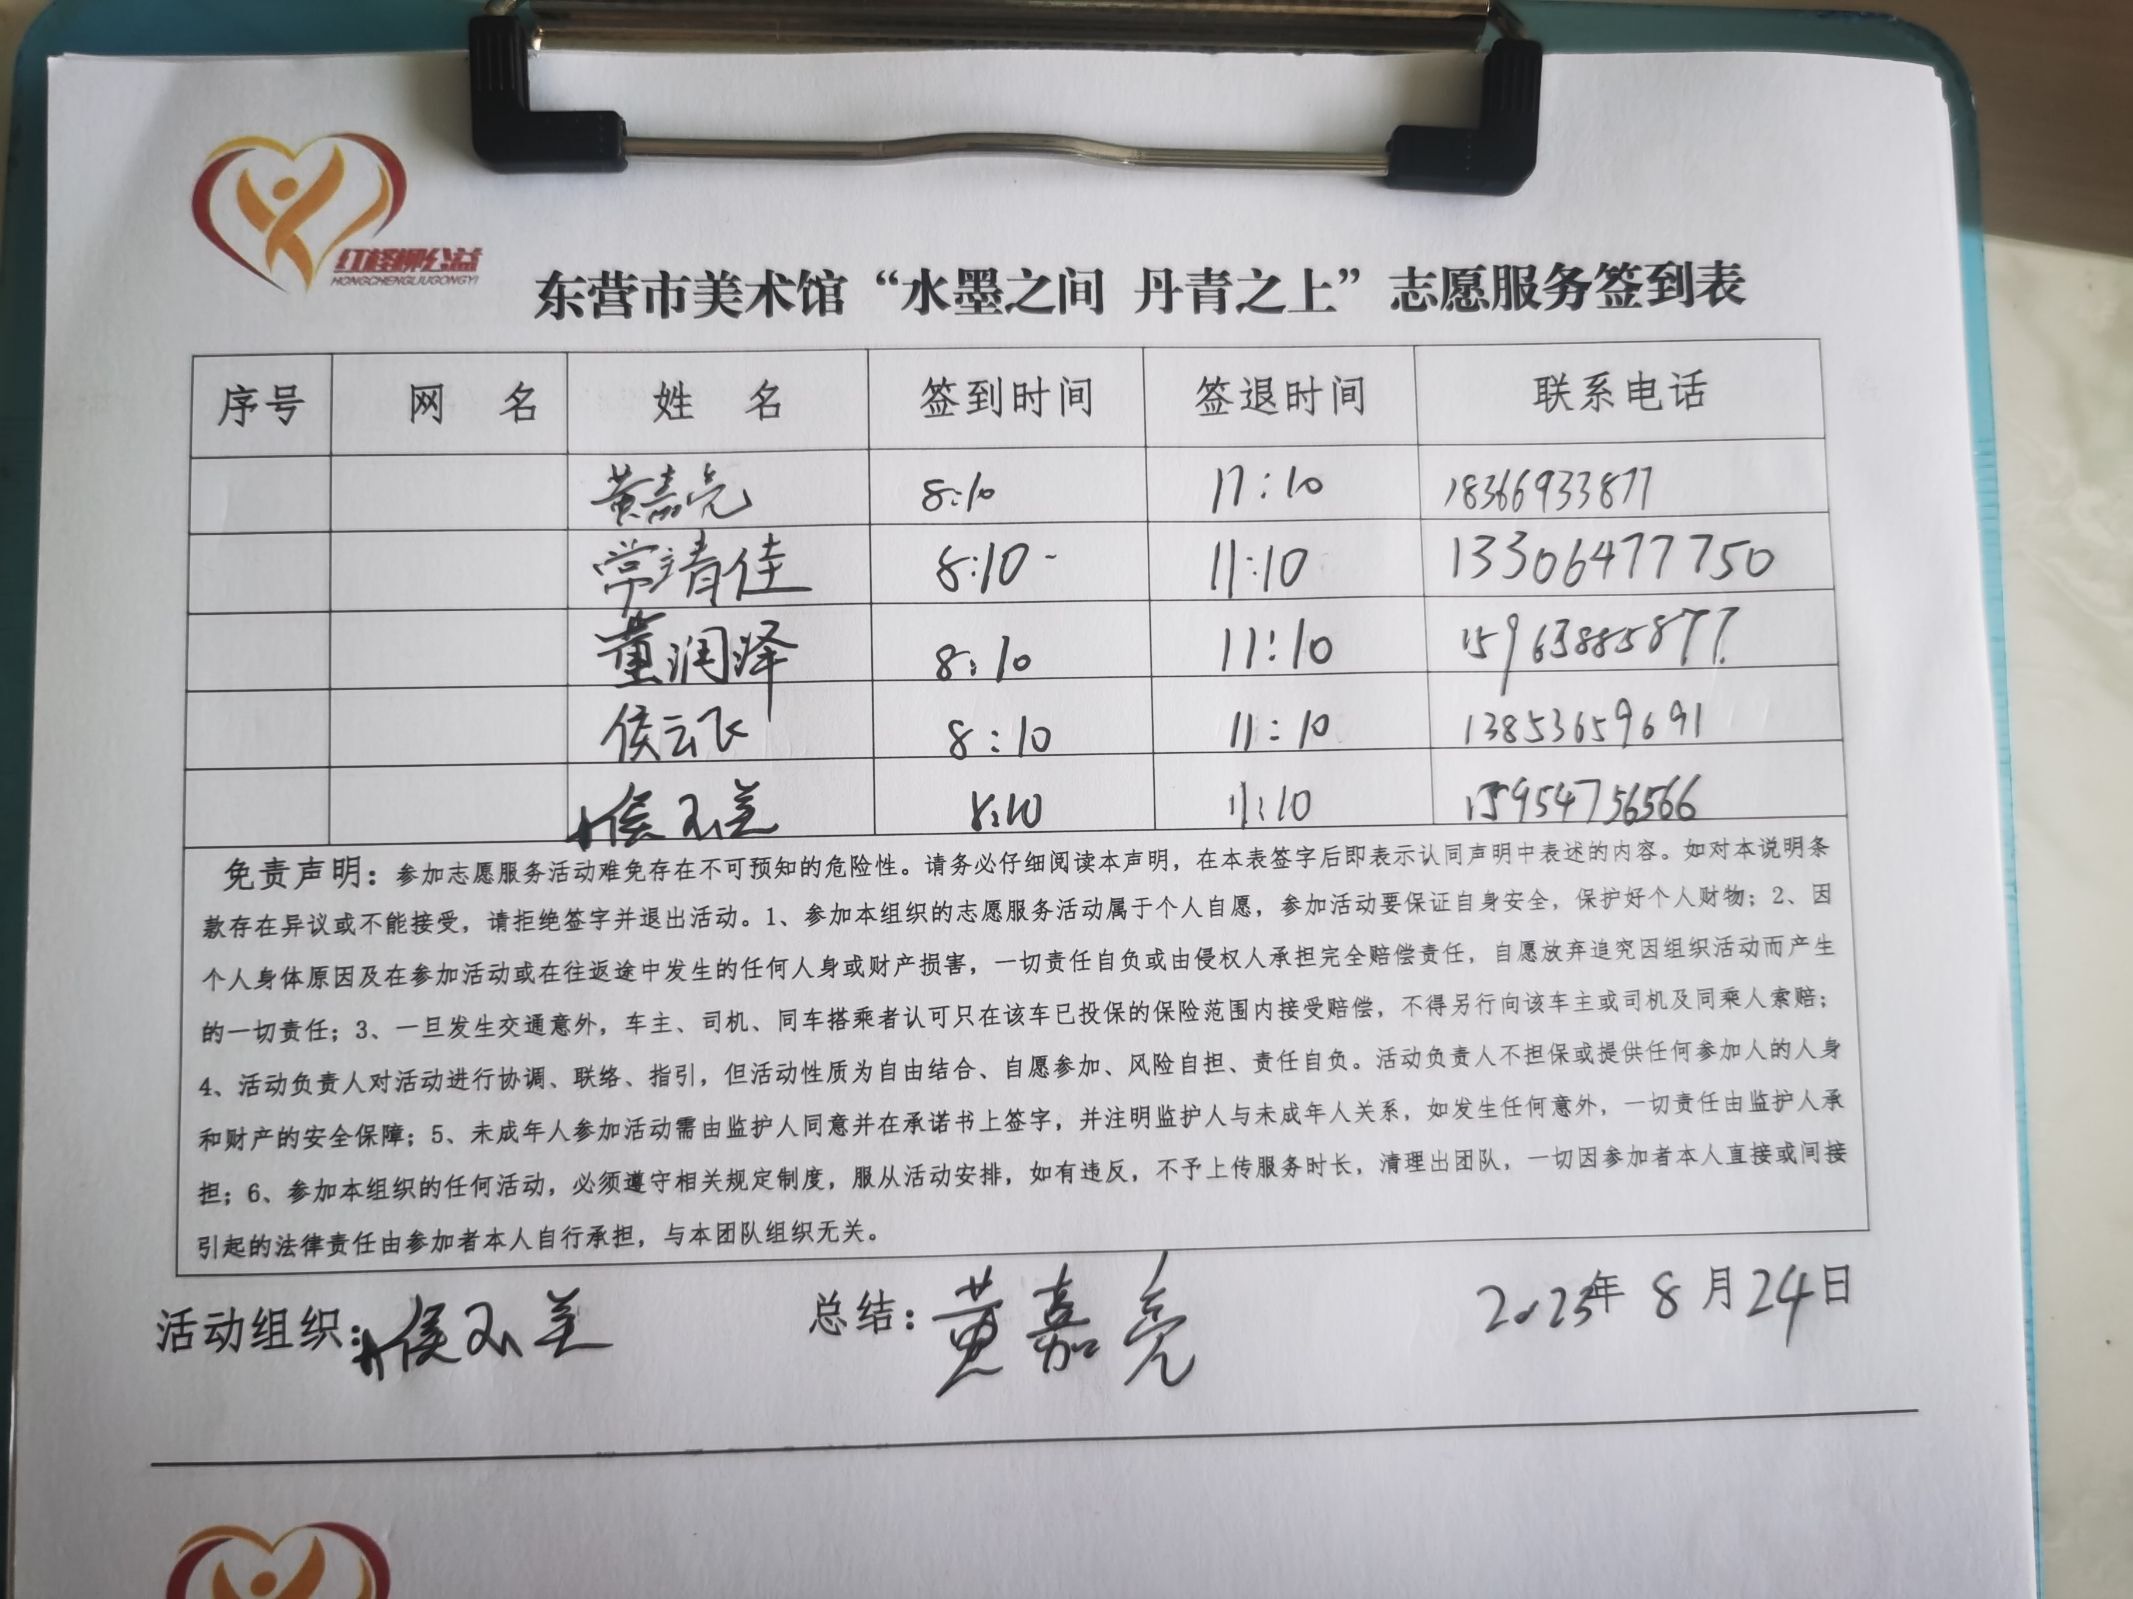 红柽柳公益
HONGCHENGLIUGONGYI
东营市美术馆“水墨之间 丹青之上”志愿服务签到表
序号 网 名 姓 名 签到时间 签退时间 联系电话
黄嘉亮 8:10 11:10 18366933877
常清佳 8:10 11:10 13306477750
董润泽 8:10 11:10 15963885877
侯云飞 8:10 11:10 13853659691
侯 兰 8:10 11:10 15954756566
免责声明：参加志愿服务活动难免存在不可预知的危险性。请务必仔细阅读本声明，在本表签字后即表示认同声明中表述的内容。如对本说明条
款存在异议或不能接受，请拒绝签字并退出活动。1、参加本组织的志愿服务活动属于个人自愿，参加活动要保证自身安全，保护好个人财物；2、因
个人身体原因及在参加活动或在往返途中发生的任何人身或财产损害，一切责任自负或由侵权人承担完全赔偿责任，自愿放弃追究因组织活动而产生
的一切责任；3、一旦发生交通意外，车主、司机、同车搭乘者认可只在该车已投保的保险范围内接受赔偿，不得另行向该车主或司机及同乘人索赔；
4、活动负责人对活动进行协调、联络、指引，但活动性质为自由结合、自愿参加、风险自担、责任自负。活动负责人不担保或提供任何参加人的人身
和财产的安全保障；5、未成年人参加活动需由监护人同意并在承诺书上签字，并注明监护人与未成年人关系，如发生任何意外，一切责任由监护人承
担；6、参加本组织的任何活动，必须遵守相关规定制度，服从活动安排，如有违反，不予上传服务时长，清理出团队，一切因参加者本人直接或间接
引起的法律责任由参加者本人自行承担，与本团队组织无关。
活动组织： 总结：黄嘉亮 2023年 8 月 24 日